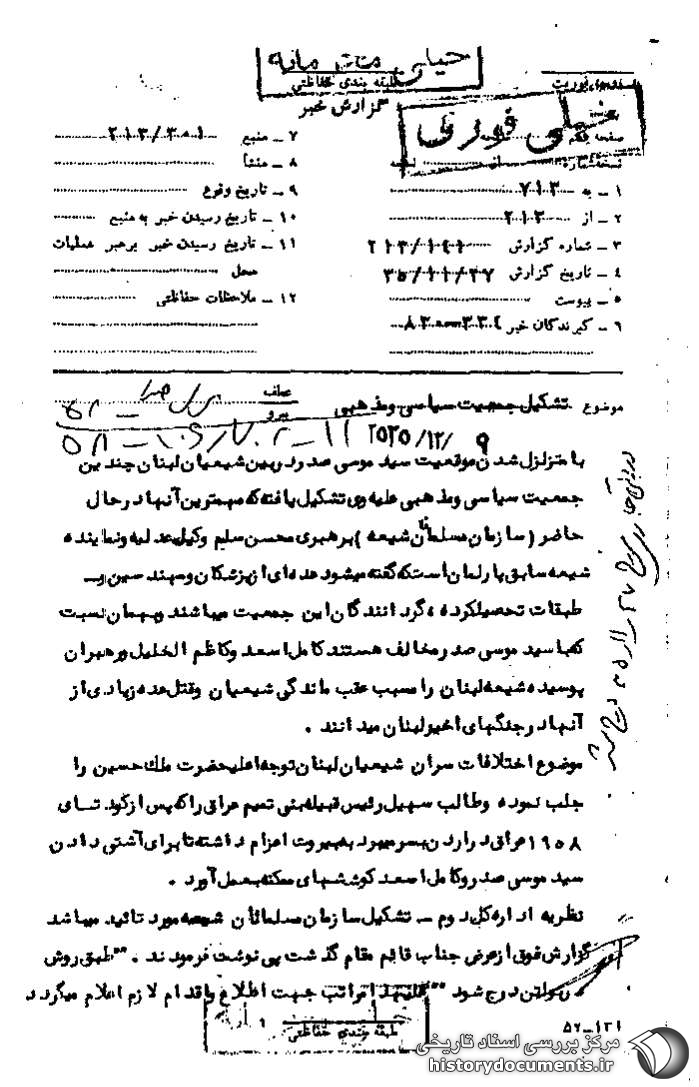 خیلی محرمانه
طبقه بندی حفاظتی
گزارش خبر
خیلی فوری
۱ – به ۷۱۳
۲ – از ۲۱۳
۳ – شماره گزارش
۴ – تاریخ گزارش
۵ – پیوست
۶ – گیرندگان خبر
۷ – منبع ۲۱۳/۳۰۱
۸ – منشأ
۹ – تاریخ وقوع
۱۰ – تاریخ رسیدن خبر به منبع
۱۱ – تاریخ رسیدن خبر برهبر عملیات
محل
۱۲ – ملاحظات حفاظتی
موضوع تشکیل جمعیت سیاسی ومذهبی
عطف
پیرو
۲۵۳۵/۱۲/۹
با متزلزل شدن موقعیت سید موسی صدر در بین شیعیان لبنان چندین
جمعیت سیاسی ومذهبی علیه وی تشکیل یافته که مهمترین آنها در حال
حاضر (سازمان مسلمانان شیعه) برهبری محسن سلیم وکیل عدلیه ونماینده
شیعه سابق پارلمان است که گفته میشود عده ای از پزشکان ومهندسین و
طبقات تحصیلکرده گردانندگان این جمعیت میباشند وبهمان نسبت
که با سید موسی صدر مخالف هستند کامل اسعد وکاظم الخلیل ورهبران
پوسیده شیعه لبنان را مسبب عقب ماندگی شیعیان وقتل عده زیادی از
آنها در جنگهای اخیر لبنان میدانند .
موضوع اختلافات سران شیعیان لبنان توجه اعلیحضرت ملک حسین را
جلب نموده وطالب سهیل رئیس قبیله بنی تمیم عراق را که پس از کودتای
۱۹۵۸ عراق در اردن بسر میبرد به بیروت اعزام داشته تا برای آشتی دادن
سید موسی صدر وکامل اسعد کوششهای ممکنه بعمل آورد .
نظریه اداره کل دوم – تشکیل سازمان مسلمانان شیعه مورد تائید میباشد
گزارش فوق از عرض جناب قائم مقام گذشت پی نوشت فرمودند . "طبق روش
در بولتن درج شود" علیهذا مراتب جهت اطلاع واقدام لازم اعلام میگردد
طبقه بندی حفاظتی
۵۲–۱۳۱
مرکز بررسی اسناد تاریخی
historydocuments.ir